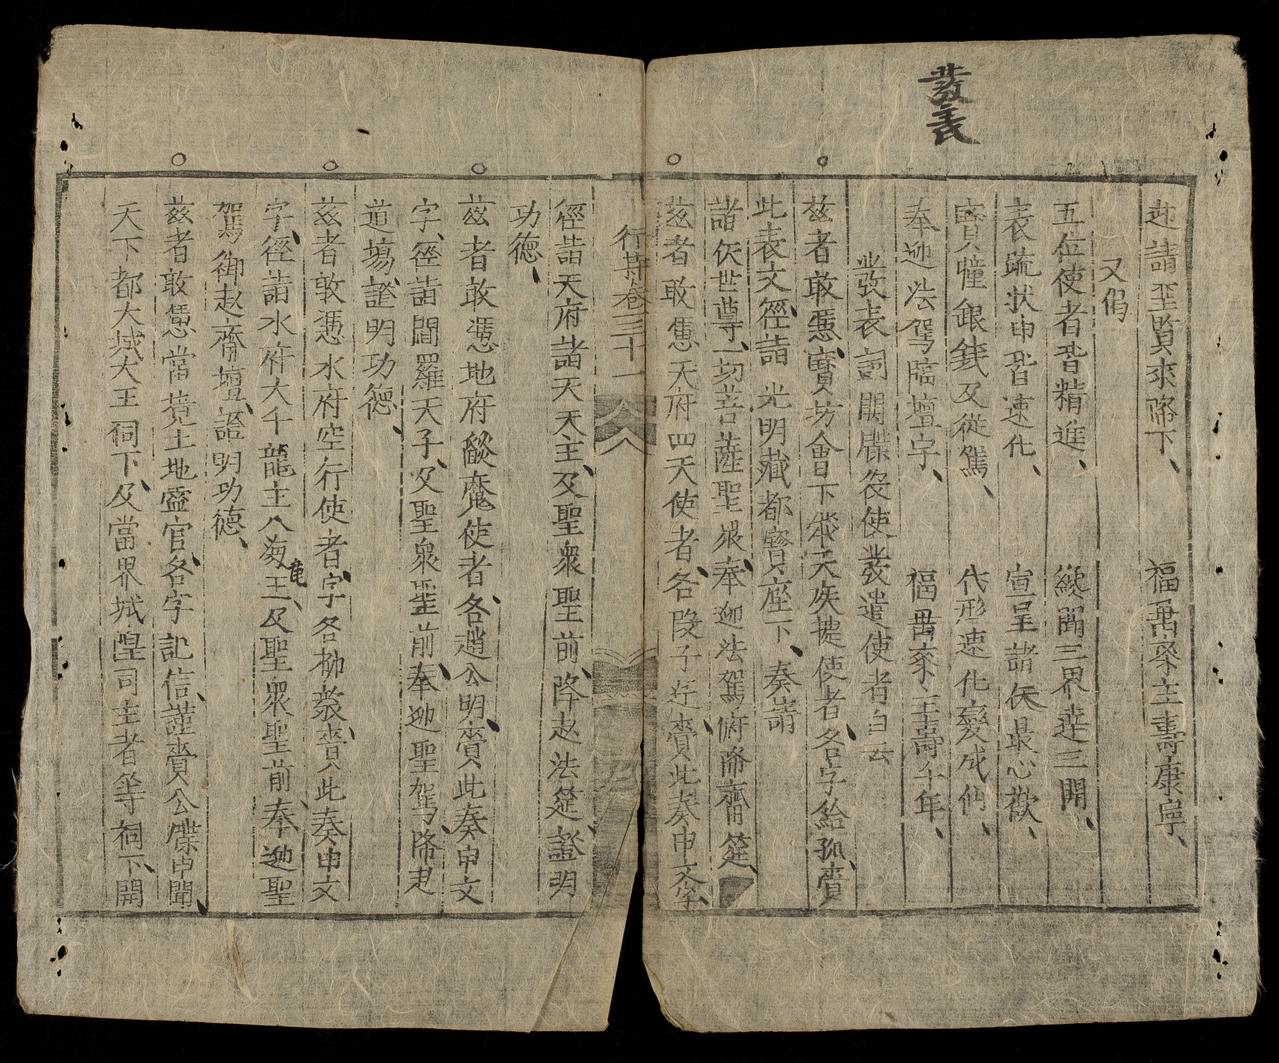 發表
赴請至賢來降下、 福畐家主壽康寧、
又偈
五位使者沓精進、 歘闻三界達三開、
表疏状申皆速化、 宣呈諸仸最心歡、
寳幢銀錢及従駕、 代形速化变成們、
奉迎法駕臨壇宇、 福畐家主壽千年、
發表詞開牒役使發遣使者白云
玆者敢憑寳坊會下飛天疾捷使者各字給孤賫
此表文徑詣 光明藏都寳座下、奏請
諸仸世尊一切菩薩聖衆奉迎法駕俯降齋筵、
玆者敢憑天府四天使者各段子廷賫此奏申文字
行持卷三十一
徑詣天府諸天天主、及聖衆聖前、降赴法筵、證明
功德、
玆者敢憑地府燄魔使者、各趙公明、賫此奏申文
字、徑詣閻羅天子、及聖衆聖前、奉迎聖駕、降赴
道場、證明功德、
玆者敢憑水府空行使者字、各柳叢、賫此奏申文
字、徑詣水府大千龍主八海龍王、及聖衆聖前、奉迎聖
駕、御赴齋壇、證明功德、
玆者敢憑當境土地霊官、各字記信、謹賫公牒申聞、
天下都大城大王祠下、及當界城隍司主者等祠下、開